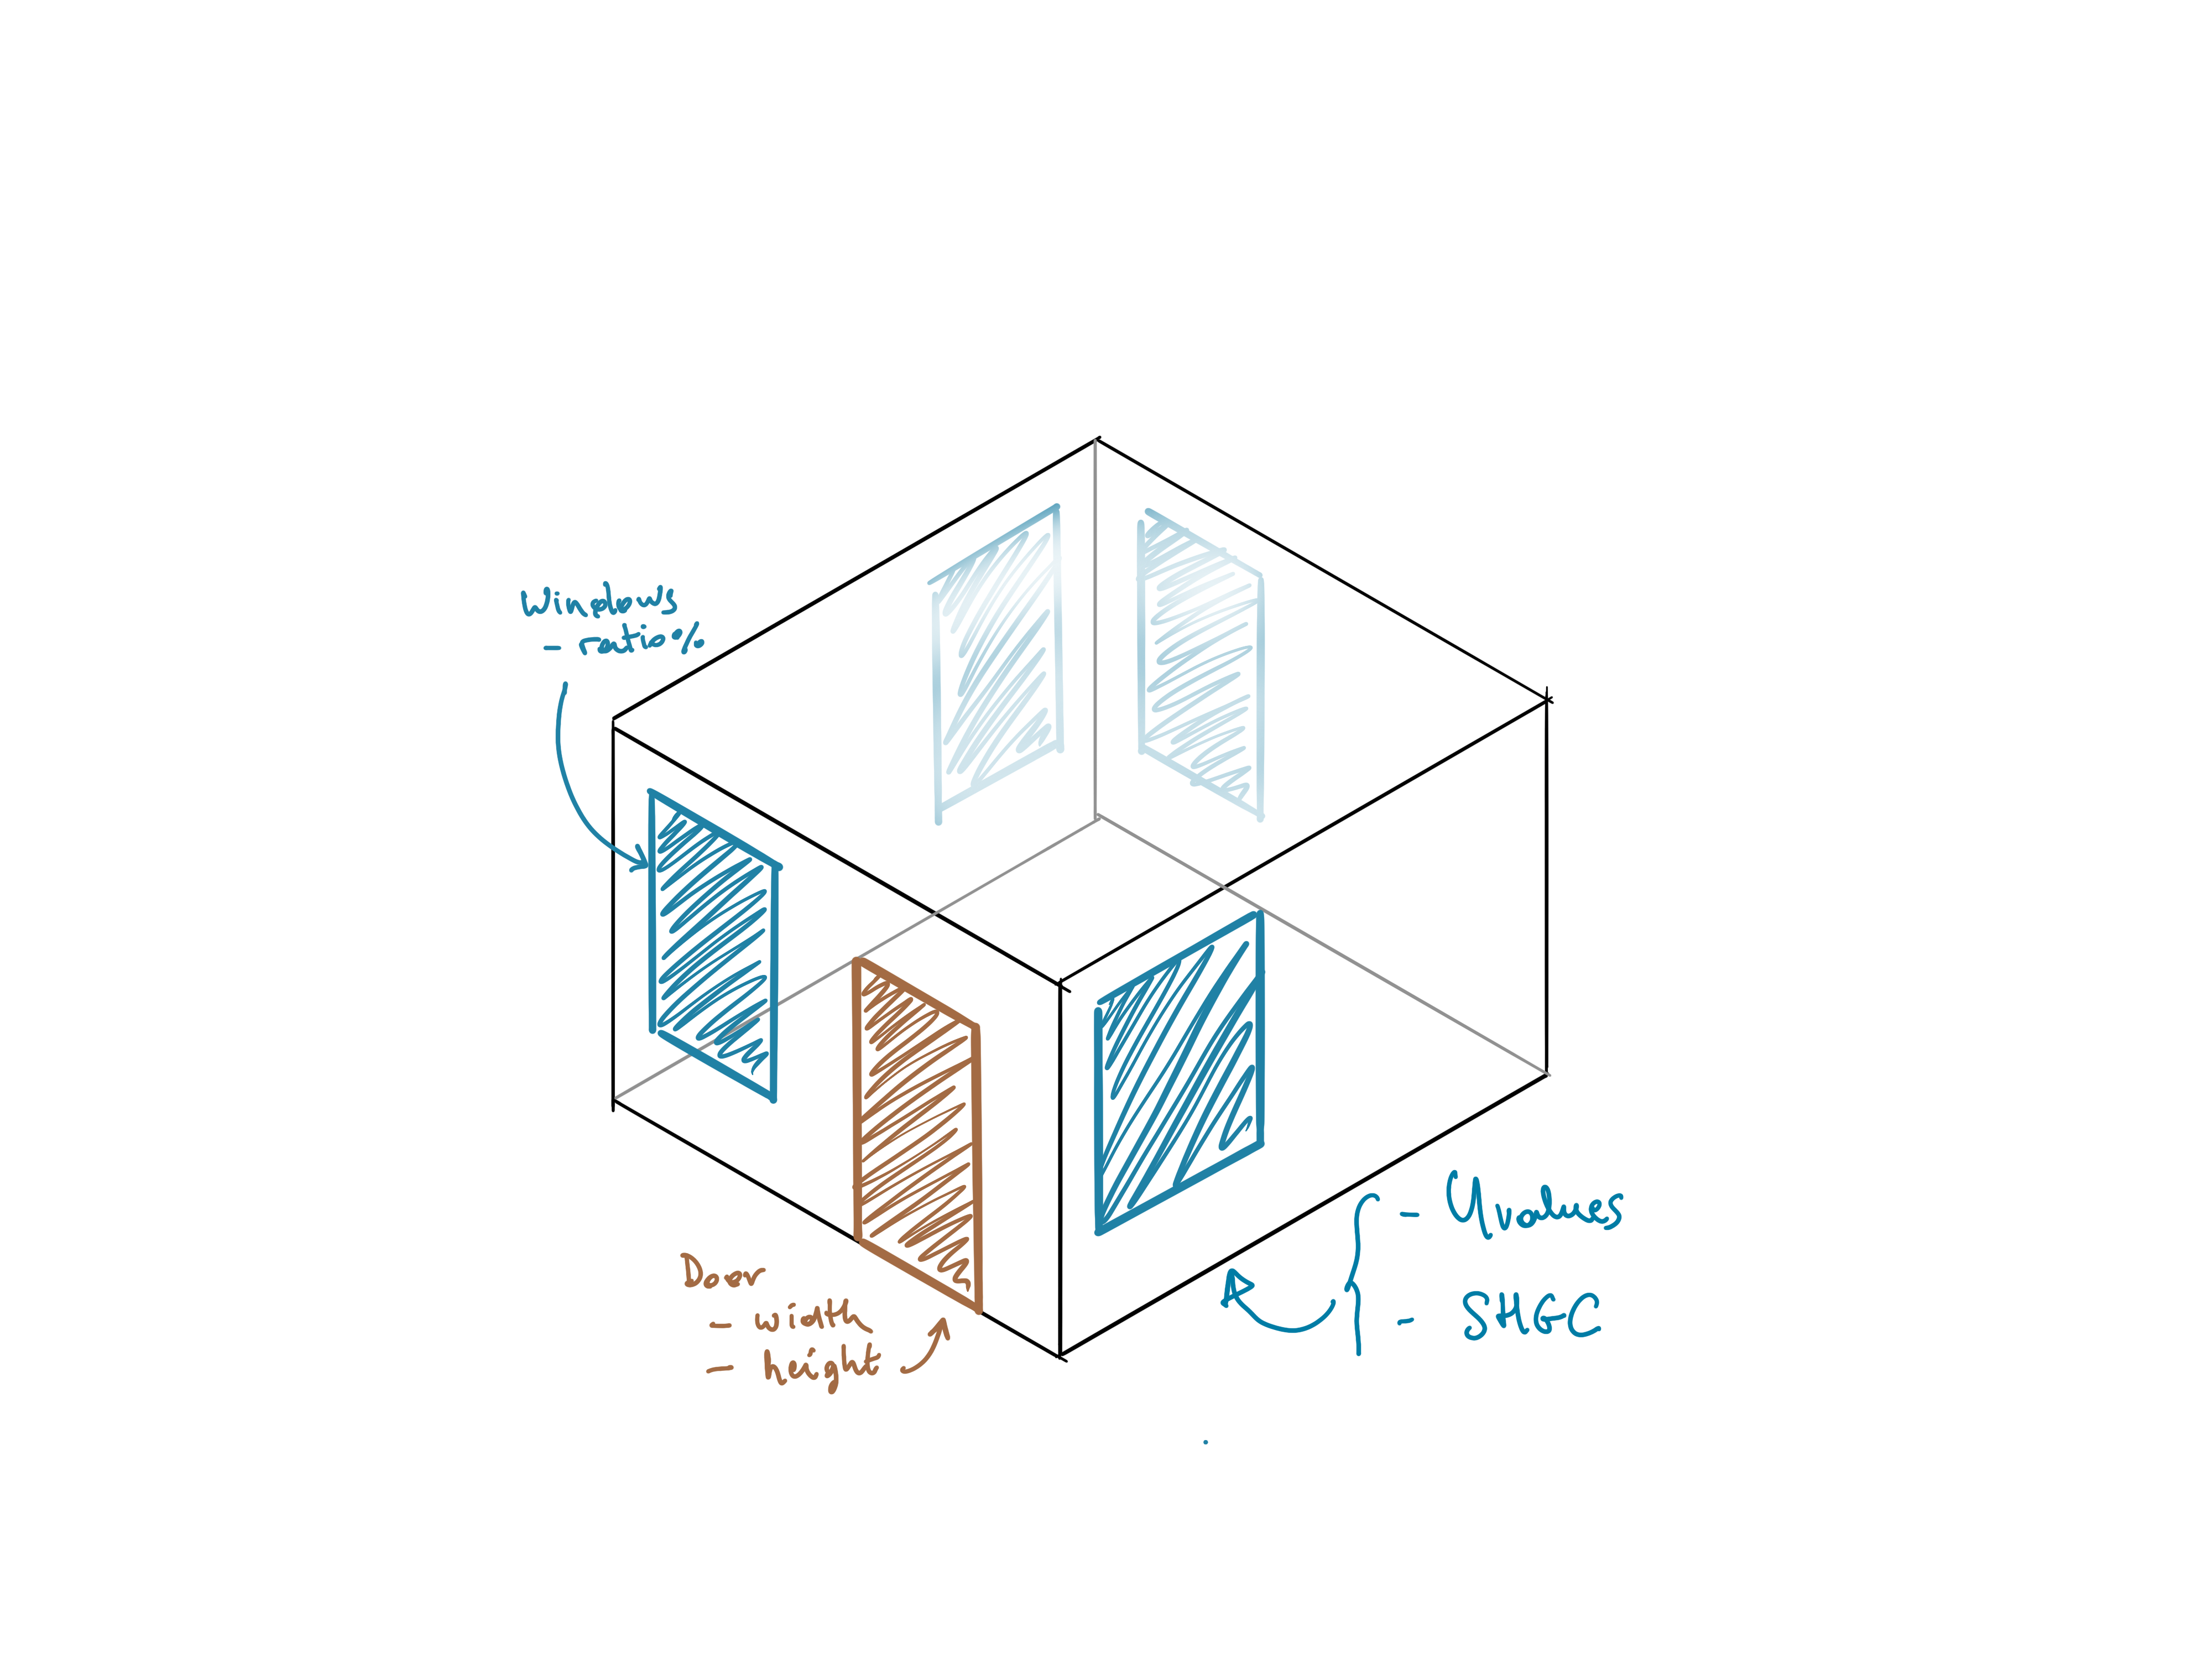 Windows
- ratio %
Door
- width
- height
- U values
- SHGC